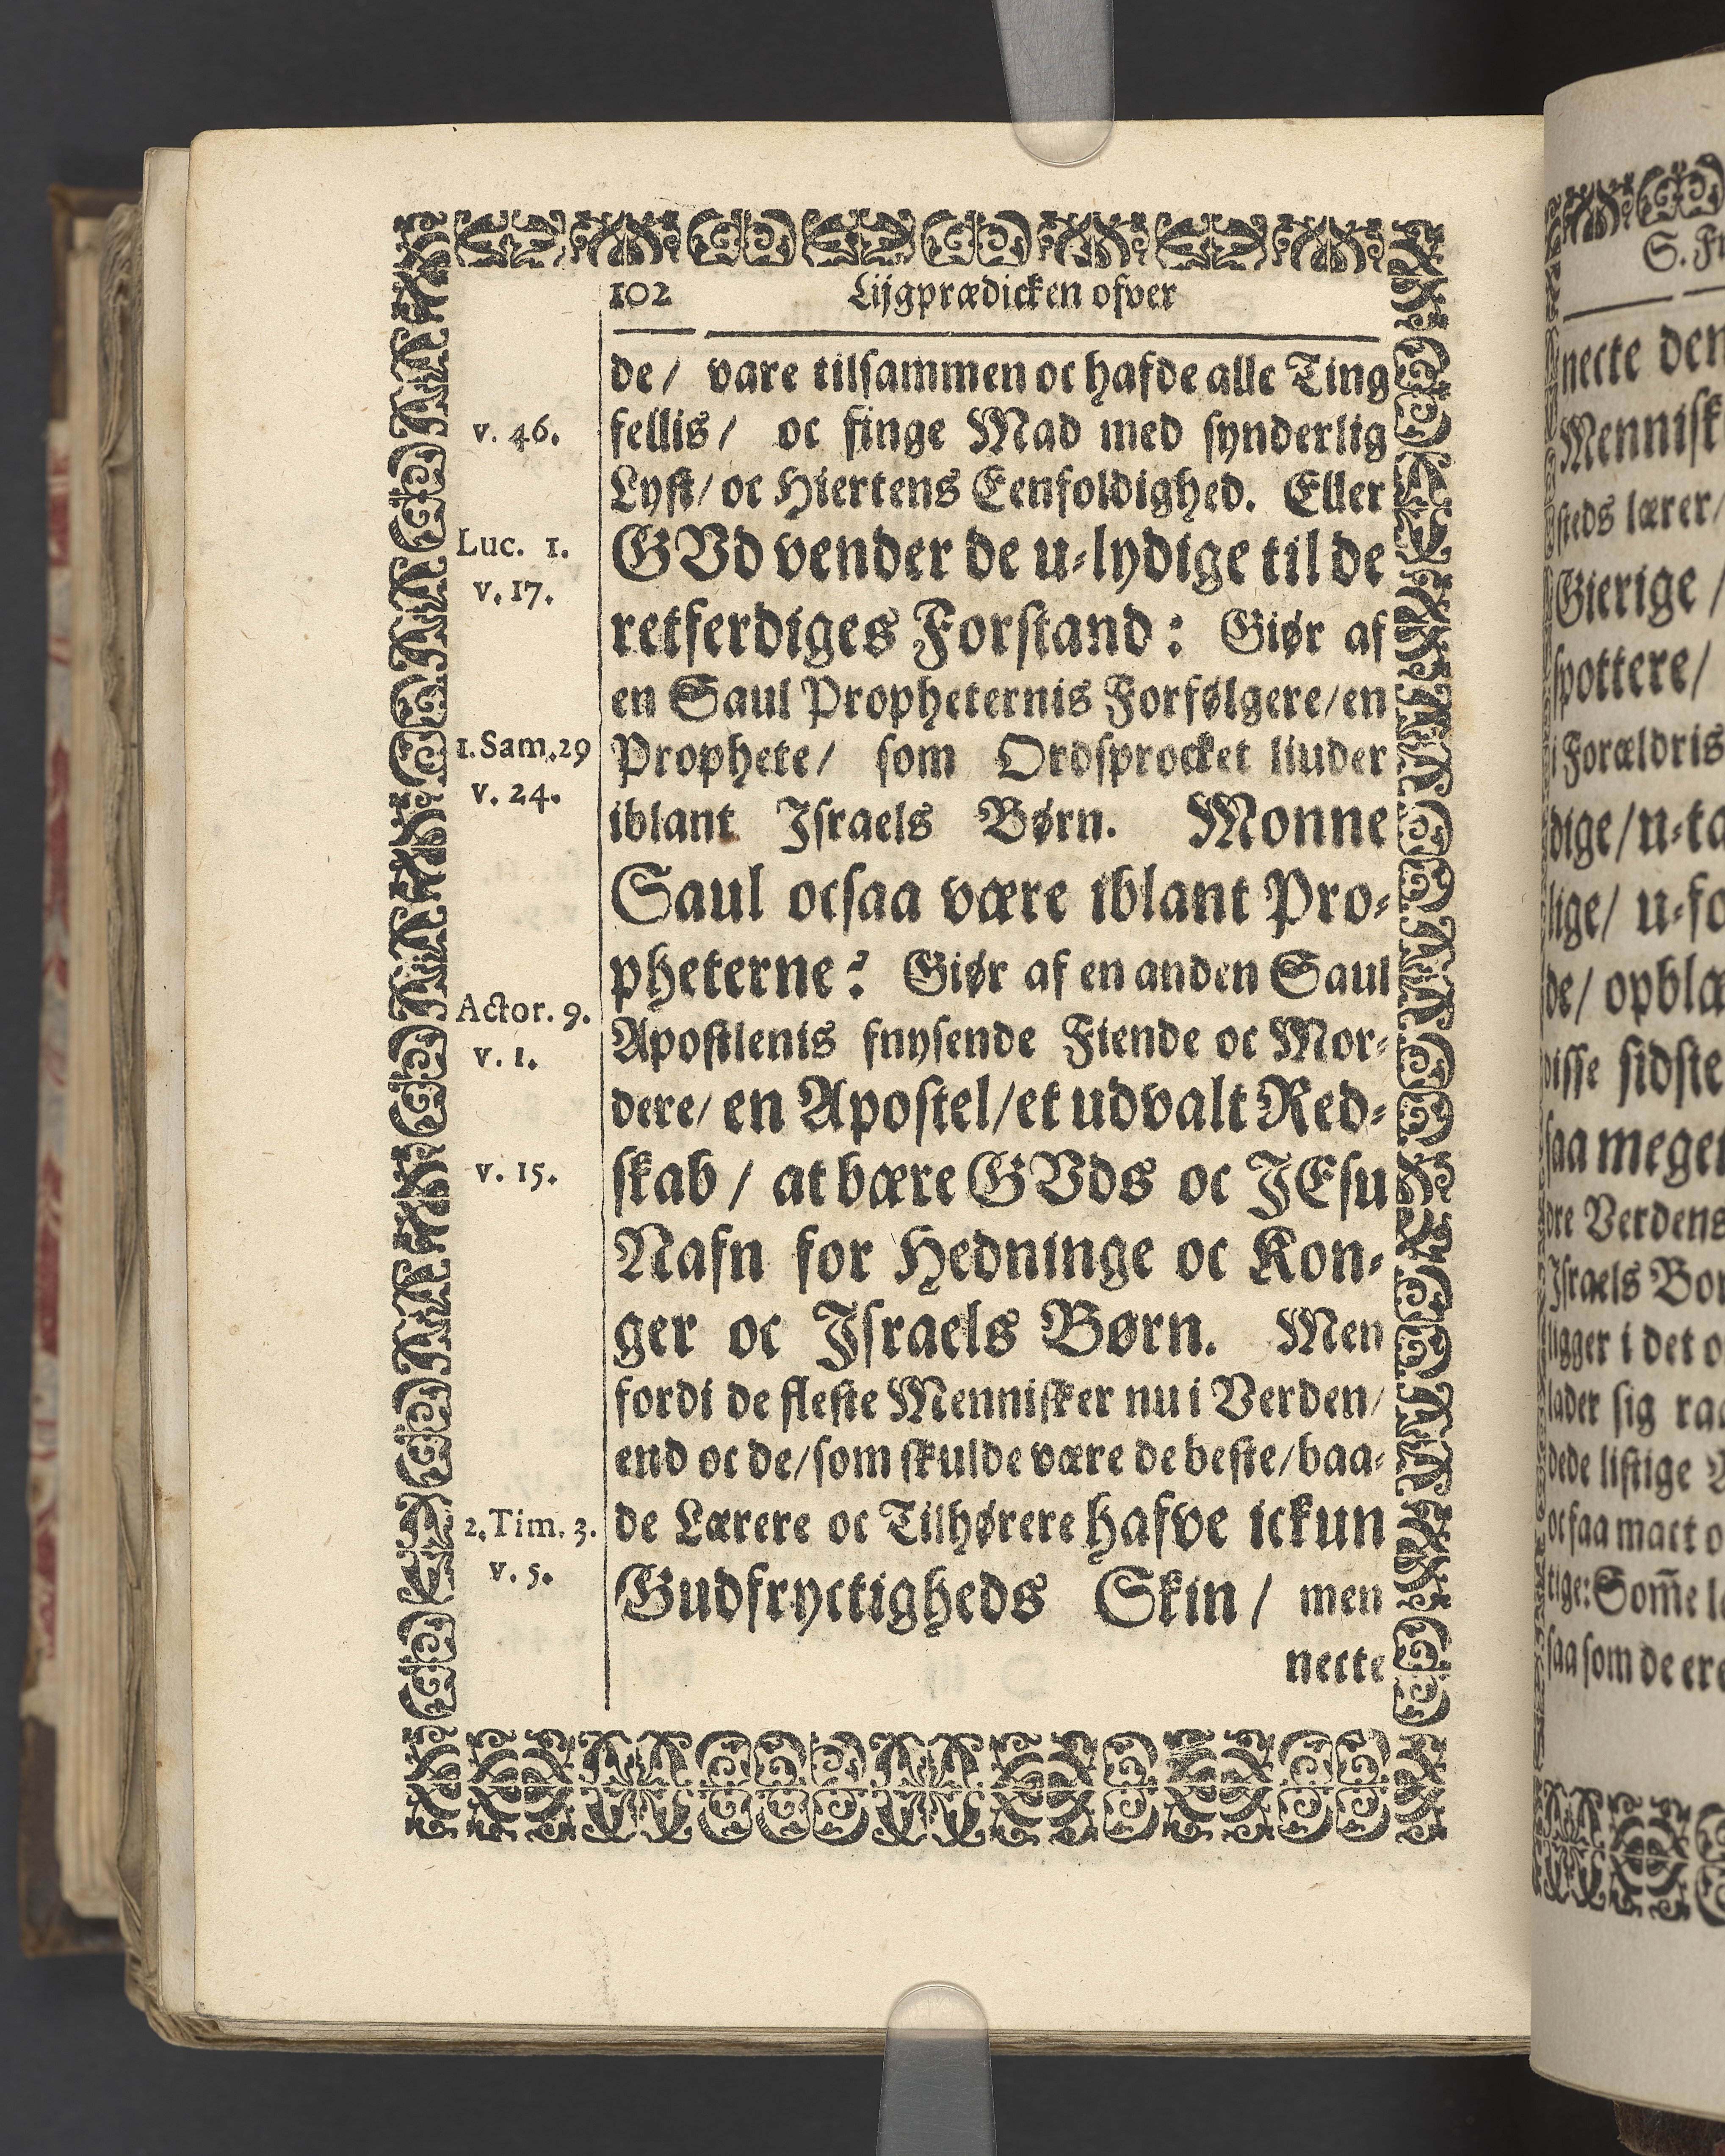 102 Lijgprædicken ofver
de / vare tilsammen oc hafde alle Ting
v. 46. fellis / oc finge Mad med synderlig
Lyst / oc Hiertens Eenfoldighed. Eller
Luc. 1. GVd vender de u-lydige til de
v. 17. retferdiges Forstand: Giør af
en Saul Propheternis Forfølgere / en
1. Sam. 29 Prophete / som Ordsprocket liuder
v. 24. iblant Israels Børn. Monne
Saul ocsaa være iblant Pro-
pheterne? Giør af en anden Saul
Actor. 9. Apostlenis fnysende Fiende oc Mor-
v. 1. dere / en Apostel / et udvalt Red-
v. 15. skab / at bære GVds oc JEsu
Nafn for Hedninge oc Kon-
ger oc Israels Børn. Men
fordi de fleste Mennisker nu i Verden /
end oc de / som skulde være de beste / baa-
2. Tim. 3. de Lærere oc Tilhørere hafve ickun
v. 5. Gudfryctigheds Skin / men
necte
S.
necte den
Mennisk
steds lærer /
Gierige /
spottere /
i Forældris
dige / u-ta
lige / u-fo
de / opblæ
disse sidste
saa meget
dre Verdens
Israels Bør
ligger i det o
lader sig
dede listige
ocsaa mact o
tige: Som̃e
saa som de ere